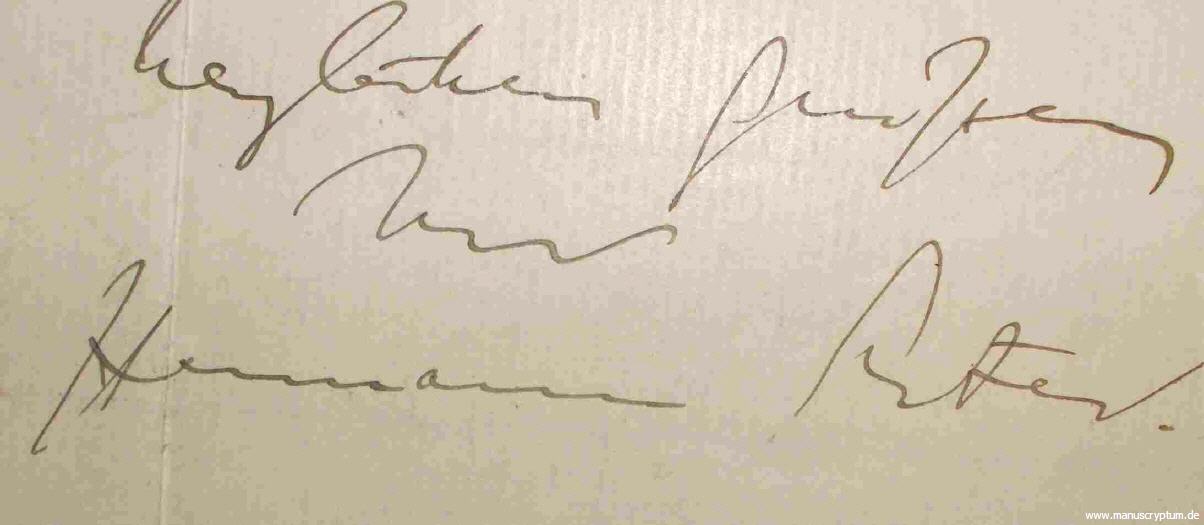 herzlichen Grüßen
Ihr
Hermann
www.manuscryptum.de